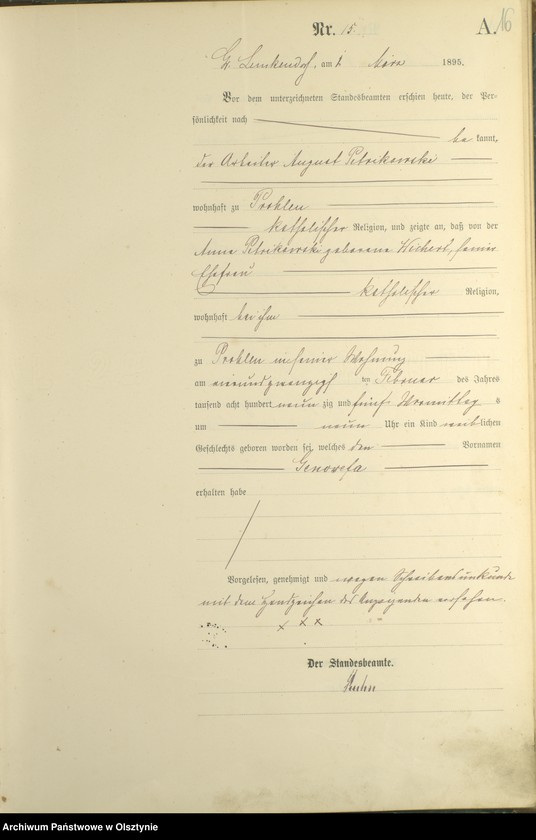 Nr. 15.
A. 16
Gr. Lemkendorf, am 1 März 1895.
Vor dem unterzeichneten Standesbeamten erschien heute, der Per-
sönlichkeit nach
be kannt,
der Arbeiter August Petrikowski
wohnhaft zu Prohlen
katholischer Religion, und zeigte an, daß von der
Anna Petrikowski geborene Wichert, seiner
Ehefrau
katholischer Religion,
wohnhaft bei ihm
zu Prohlen in seiner Wohnung
am vierundzwanzigst en Februar des Jahres
tausend acht hundert neun zig und fünf Vormittag s
um neun Uhr ein Kind weiblichen
Geschlechts geboren worden sei, welches den Vornamen
Genowefa
erhalten habe
Vorgelesen, genehmigt und wegen Schreibensunkunde
mit dem Handzeichen des Anzeigenden versehen.
x x x
Der Standesbeamte.
Archiwum Państwowe w Olsztynie